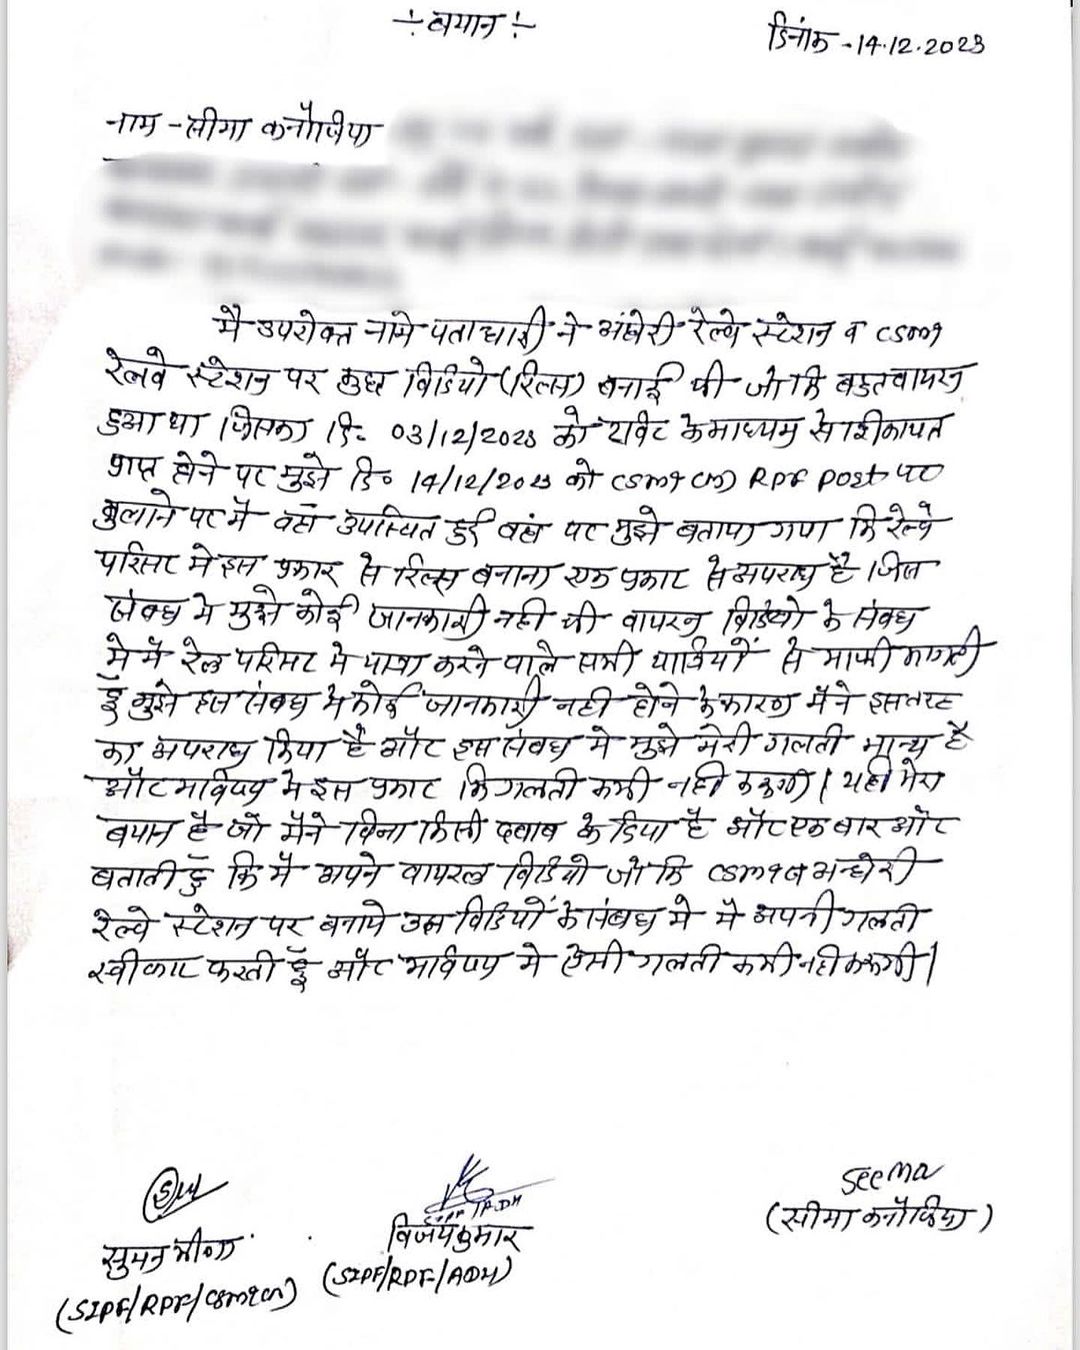 ÷ बयान ÷
दिनांक - 14.12.2023
नाम - सीमा कनौजिया
मै उपरोक्त नामे पताधारी ने अंधेरी रेल्वे स्टेशन व CSMT
रेलवे स्टेशन पर कुछ विडियो (रिल्स) बनाई थी जो कि बहुत वायरल
हुआ था जिसका दि. 03/12/2023 को ट्वीट के माध्यम से शिकायत
प्राप्त होने पर मुझे दि० 14/12/2023 को CSMT (M) RPF POST पर
बुलाने पर मै वहाँ उपस्थित हुई वहां पर मुझे बताया गया कि रेल्वे
परिसर मे इस प्रकार से रिल्स बनाना एक प्रकार से अपराध है जिस
संबंध मे मुझे कोई जानकारी नही थी वायरल विडियो के संबंध
मे मै रेल परिसर मे यात्रा करने वाले सभी यात्रियों से माफी मागती
हूँ मुझे इस संबंध मे कोई जानकारी नही होने के कारण मैने इस तरह
का अपराध किया है और इस संबंध मे मुझे मेरी गलती मान्य है
और भविष्य मे इस प्रकार कि गलती कभी नही करूगी। यही मेरा
बयान है जो मैने बिना किसी दबाब के दिया है और एक बार और
बताती हूँ कि मै अपने वायरल विडियो जो कि CSMT व अन्धेरी
रेल्वे स्टेशन पर बनाये उस विडियों के संबंध मे मै अपनी गलती
स्वीकार करती हूँ और भविष्य मे ऐसी गलती कभी नही करूगी।
Seema
(सीमा कनौजिया)
सुमन मीणा
विजयकुमार
(SIPF/RPF/CSMT(M))
(SIPF/RPF/ADH)